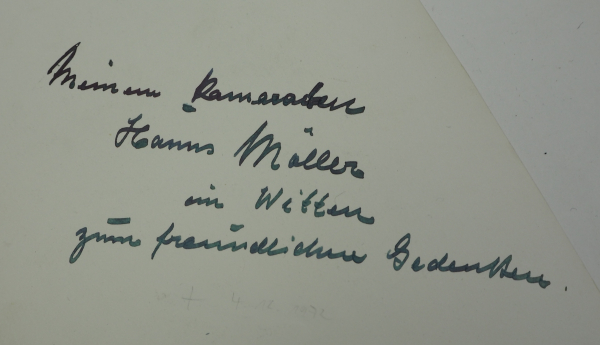 Meinem Kameraden
Hanns Möller
in Witten
zum freundlichen Gedenken.